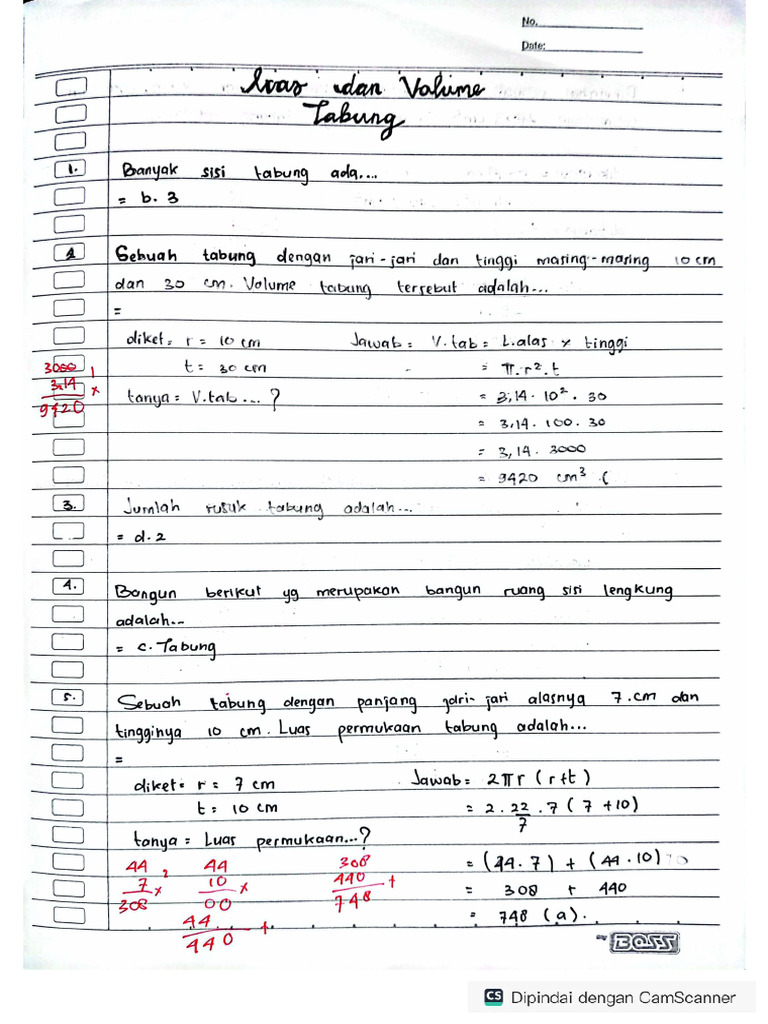 No.
Date:
Luas dan Volume
Tabung
1. Banyak sisi tabung ada....
= b. 3
2 Sebuah tabung dengan jari-jari dan tinggi masing-masing 10 cm
dan 30 cm. Volume tabung tersebut adalah...
=
diket: r = 10 cm Jawab = V.tab = L.alas x tinggi
t = 30 cm = π. r². t
tanya = V.tab ... ? = 3,14 . 10² . 30
= 3,14 . 100 . 30
= 3,14 . 3000
= 9420 cm³ (
3000
3.14 x
9420
3. Jumlah rusuk tabung adalah...
= d. 2
4. Bangun berikut yg merupakan bangun ruang sisi lengkung
adalah...
= c. Tabung
5. Sebuah tabung dengan panjang jari-jari alasnya 7 cm dan
tingginya 10 cm. Luas permukaan tabung adalah...
=
diket = r = 7 cm Jawab = 2πr (r+t)
t = 10 cm = 2. 22/7 . 7 (7 +10)
tanya = Luas permukaan...?
= (44.7) + (44.10)
= 308 + 440
= 748 (a).
44 44 308
7 x 10 x 440 +
308 00 748
44 +
440
by BOSS
CS Dipindai dengan CamScanner